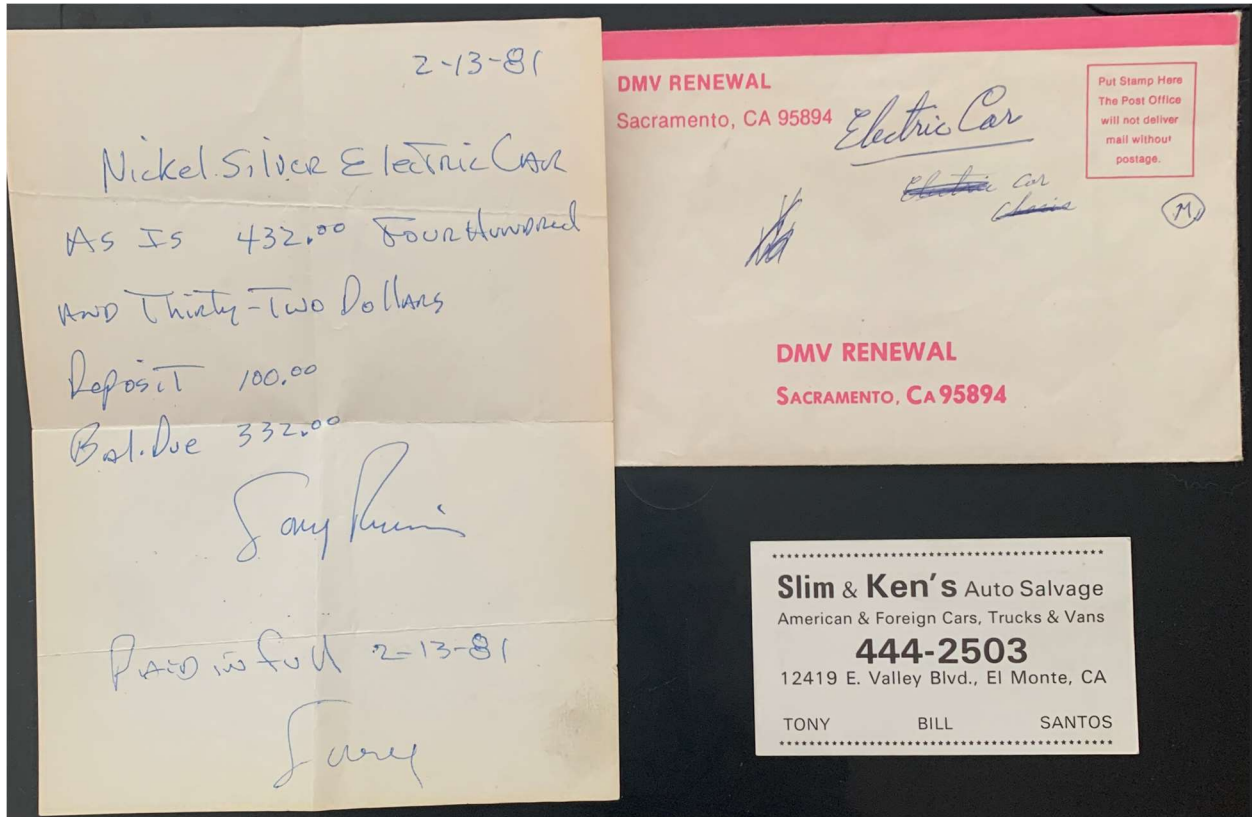 2-13-81
Nickel Silver Electric Car
As Is 432.00 Four Hundred
And Thirty-Two Dollars
Deposit 100.00
Bal. Due 332.00
Tony
Paid in full 2-13-81
Tony
DMV RENEWAL
Sacramento, CA 95894
Electric Car
Put Stamp Here
The Post Office
will not deliver
mail without
postage.
Electric Car
M
DMV RENEWAL
SACRAMENTO, CA 95894
Slim & Ken's Auto Salvage
American & Foreign Cars, Trucks & Vans
444-2503
12419 E. Valley Blvd., El Monte, CA
TONY BILL SANTOS